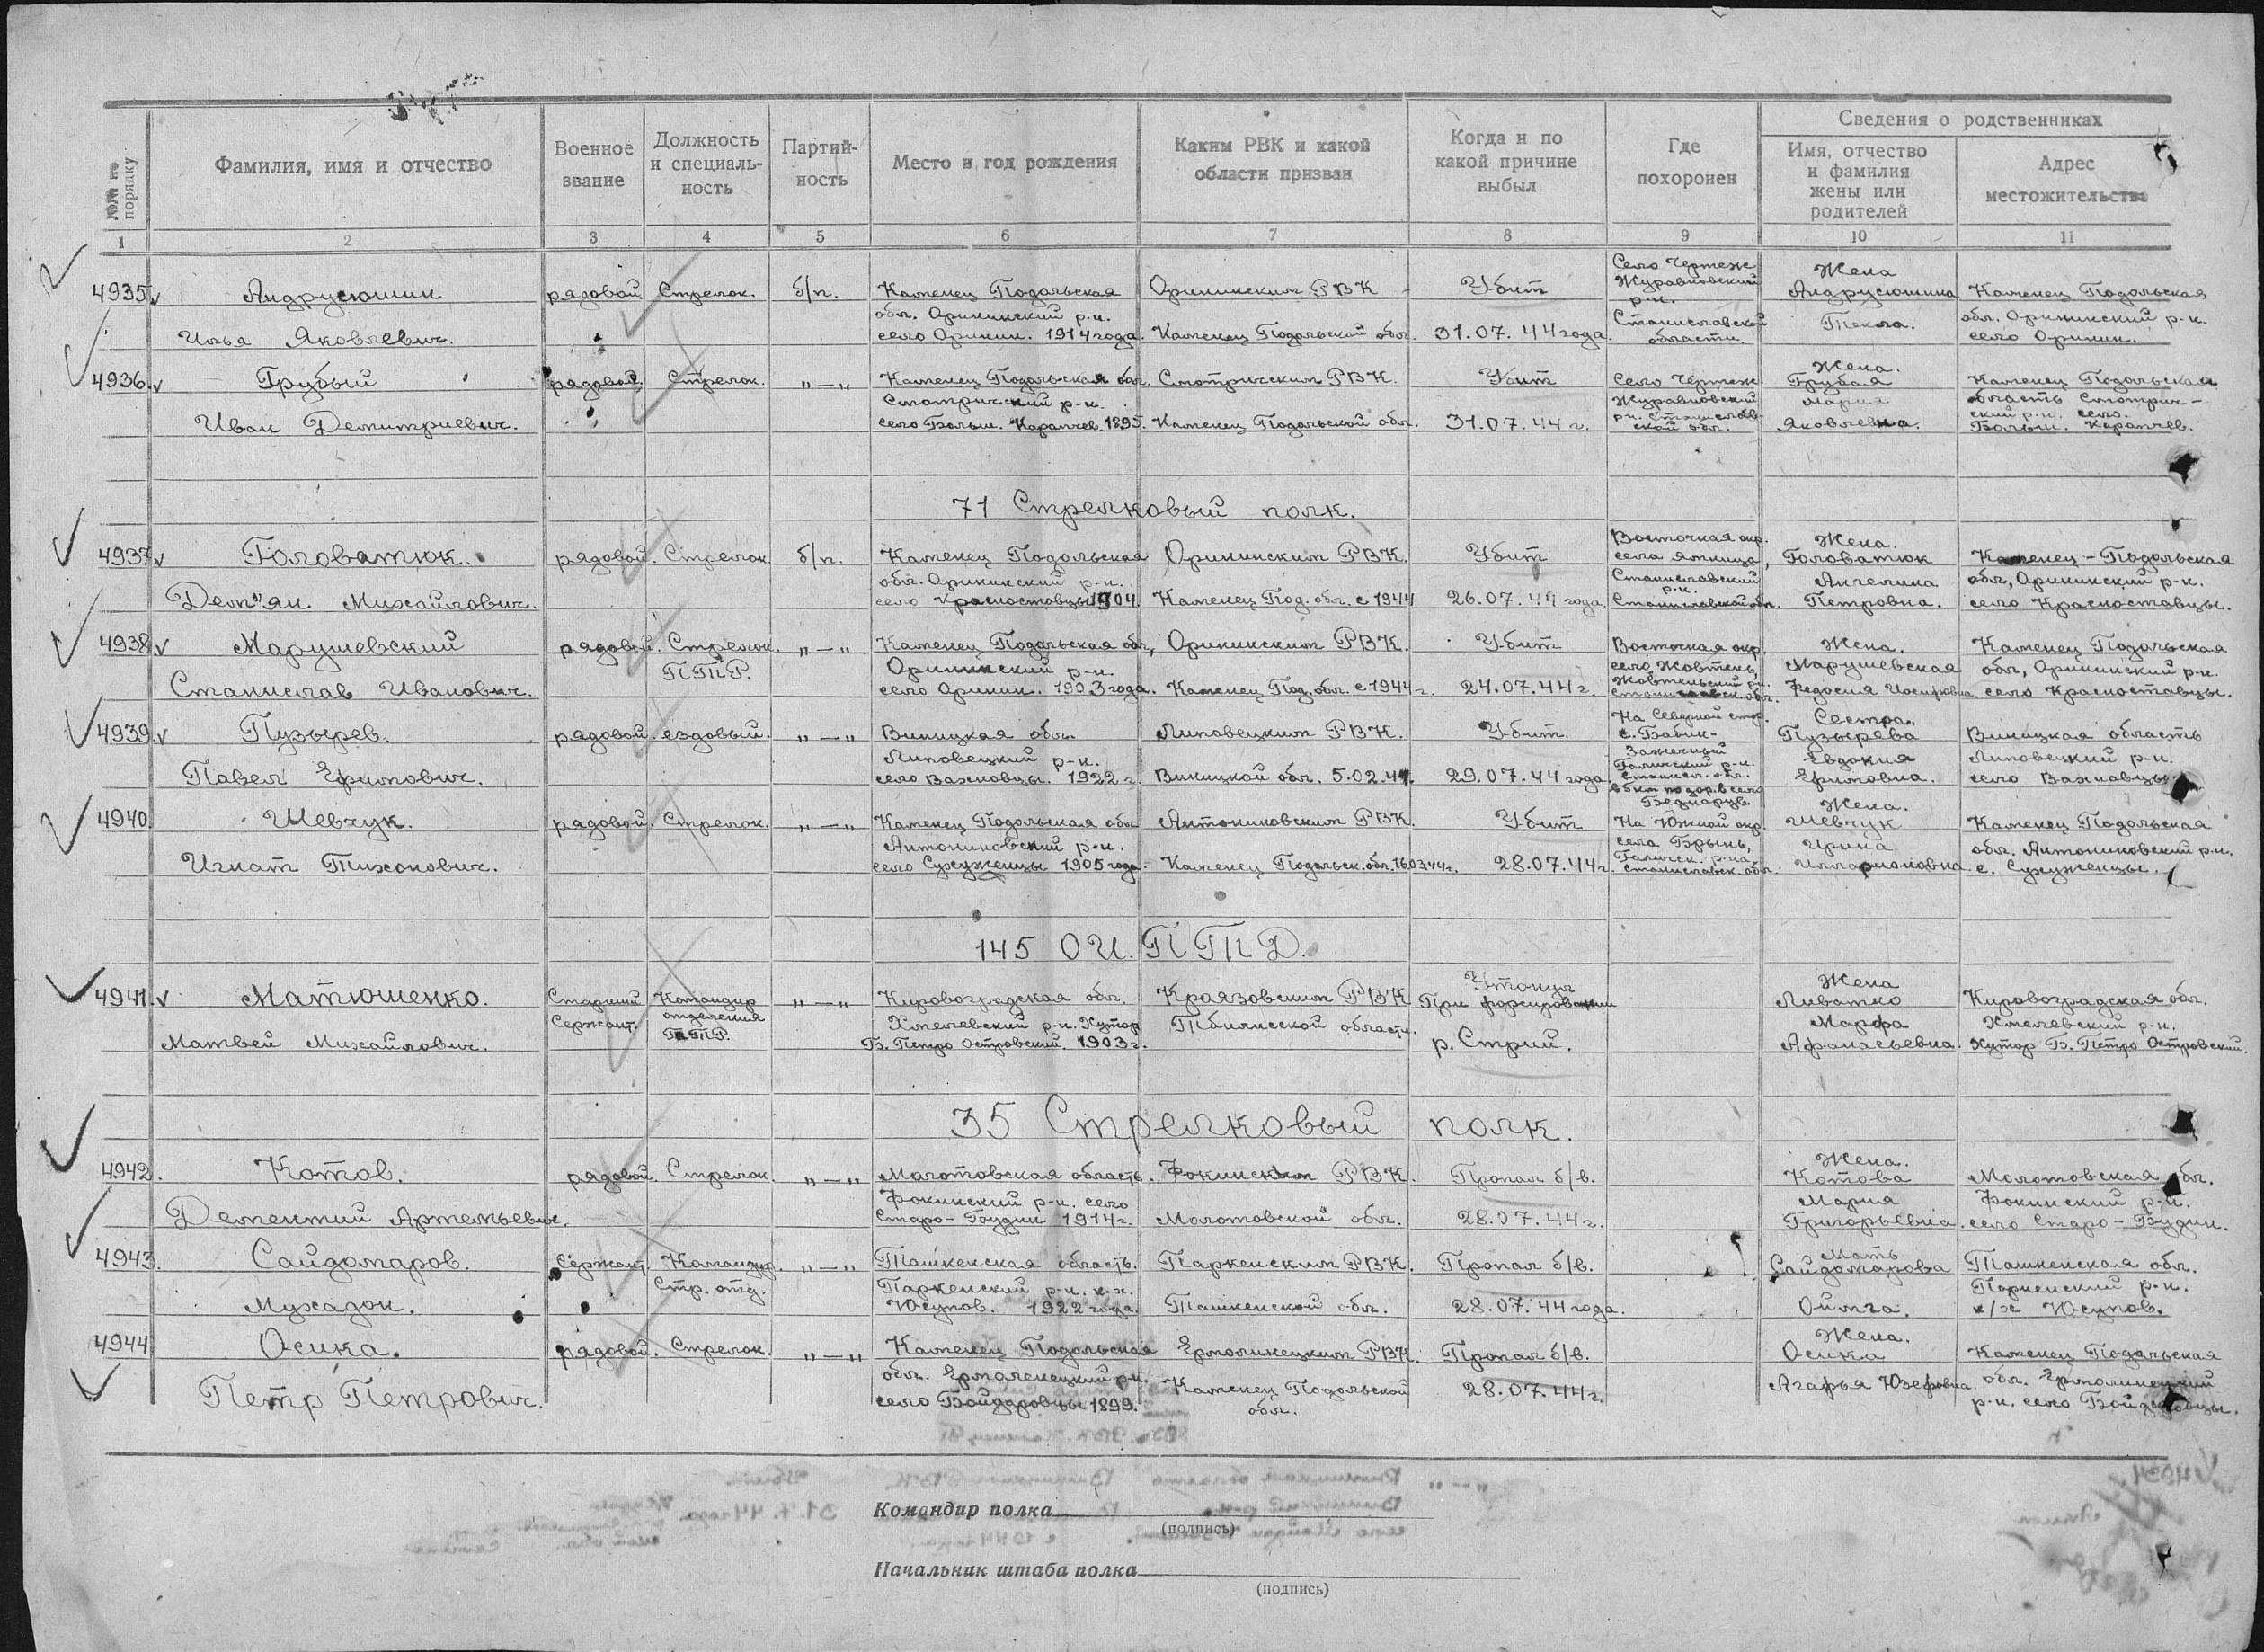 Сведения о родственниках
№№ по порядку
Фамилия, имя и отчество
Военное звание
Должность и специаль-ность
Партий-ность
Место и год рождения
Каким РВК и какой области призван
Когда и по какой причине выбыл
Где похоронен
Имя, отчество и фамилия жены или родителей
Адрес местожительства
1 2 3 4 5 6 7 8 9 10 11
4935 Андрусюшин рядовой. Стрелок. б/п. Каменец Подольская Орининским РВК Убит Село Чертеж Журавновский р-н. Жена Андрусюшина Каменец Подольская
Илья Яковлевич. обл. Орининский р-н. село Оринин. 1914 года. Каменец Подольской обл. 31.07.44 года. Станиславской области. Текла. обл. Орининский р-н. село Оринин.
4936. Грубый рядовой. Стрелок. „—„ Каменец Подольская обл. Смотричским РВК. Убит село Чертеж Жена. Грубая Каменец Подольская
Иван Демитриевич. Смотричский р-н. село Больш. Карапчев. 1895. Каменец Подольской обл. 31.07.44 г. Журавновский р-н. Станислав-ской обл. Мария Яковлевна. область Смотрич-ский р-н. село. Больш. Карапчев.
71 Стрелковый полк.
4937 Головатюк. рядовой. Стрелок б/п. Каменец Подольская Орининским РВК. Убит Восточная окр. села Ямница, Жена. Головатюк Каменец-Подольская
Дем"ян Михайлович. обл. Орининский р-н. село Красноставцы 1904. Каменец Под. обл. с 1944 26.07.44 года. Станиславский р-н. Станиславской обл. Ангелина Петровна. обл, Орининский р-н. село Красноставцы.
4938 Марушевский рядовой. Стрелок. ПТР. „—„ Каменец Подольская обл, Орининским РВК. Убит Восточная окр. Жена. Каменец Подольская
Станислав Иванович. Орининский р-н. село Оринин. 1903 года. Каменец Под. обл. с 1944 г. 24.07.44 г. село Жовтень, Жовтеньский р-н. Станиславск. обл. Марушевская Федосия Иосифовна. обл, Орининский р-н. село Красноставцы.
4939 Пузырев. рядовой. ездовый. „—„ Виницкая обл. Липовецким РВК. Убит. На Северной стор. с. Бабин- Сестра. Пузырева Виницкая область
Павел Ефимович. Липовецкий р-н. село Вахновцы. 1922 г. Виницкой обл. 5.02.44. 29.07.44 года. Заречный Галичский р-н. Станисл. обл. Евдокия Ефимовна. Липовецкий р-н. село Вахновцы
Беднаров.
4940 Шевчук. рядовой. Стрелок. „—„ Каменец Подольская обл Антониновским РВК. Убит На Южной окр. Жена. Шевчук Каменец Подольская
Игнат Тихонович. Антониновский р-н. село Сухуженцы 1905 года. Каменец Подольск. обл. 16.03.44 г. 28.07.44 г. села Брынь, Галичск. р-на Станиславск. обл. Ирина Илларионовна обл. Антониновский р-н. с. Сухуженцы.
145 ОИ.ПТД.
4941. Матюшенко. Старший Сержант. Командир отделения ПТР. „—„ Кировоградская обл. Краязовским РВК Утонул При форсировании Жена Ливатко Кировоградская обл.
Матвей Михайлович. Хмелевский р-н. Хутор Б. Петро Островский. 1903 г. Тбилисской области. р. Стрий. Марфа Афанасьевна. Хмелевский р-н. Хутор Б. Петро Островский.
35 Стрелковый полк.
4942. Котов. рядовой. Стрелок. „—„ Молотовская область. Фокинским РВК. Пропал б/в. Жена. Котова Молотовская обл.
Дементий Артемьевич. Фокинский р-н. село Старо-Будин 1914 г. Молотовской обл. 28.07.44 г. Мария Григорьевна. Фокинский р-н. село Старо-Будин.
4943. Сайдомаров. Сержант. Командир. Стр. отд. „—„ Ташкенская область. Паркенским РВК. Пропал б/в. Мать Сайдомарова Ташкенская обл.
Мухадон. Паркенский р-н. к.х. Юсупов. 1922 года. Ташкенской обл. 28.07.44 года. Оймга. Паркенский р-н. к/х Юсупов.
4944 Осика. рядовой. Стрелок. „—„ Каменец Подольская Ермолинецким РВК. Пропал б/в. Жена. Осика Каменец Подольская
Петр Петрович. обл. Ермолинецкий р-н. село Бойдаровцы 1899. Каменец Подольской обл. 28.07.44 г. Агафья Юзефовна. обл. Ермолинецкий р-н. село Бойдаровцы.
Командир полка
(подпись)
Начальник штаба полка
(подпись)